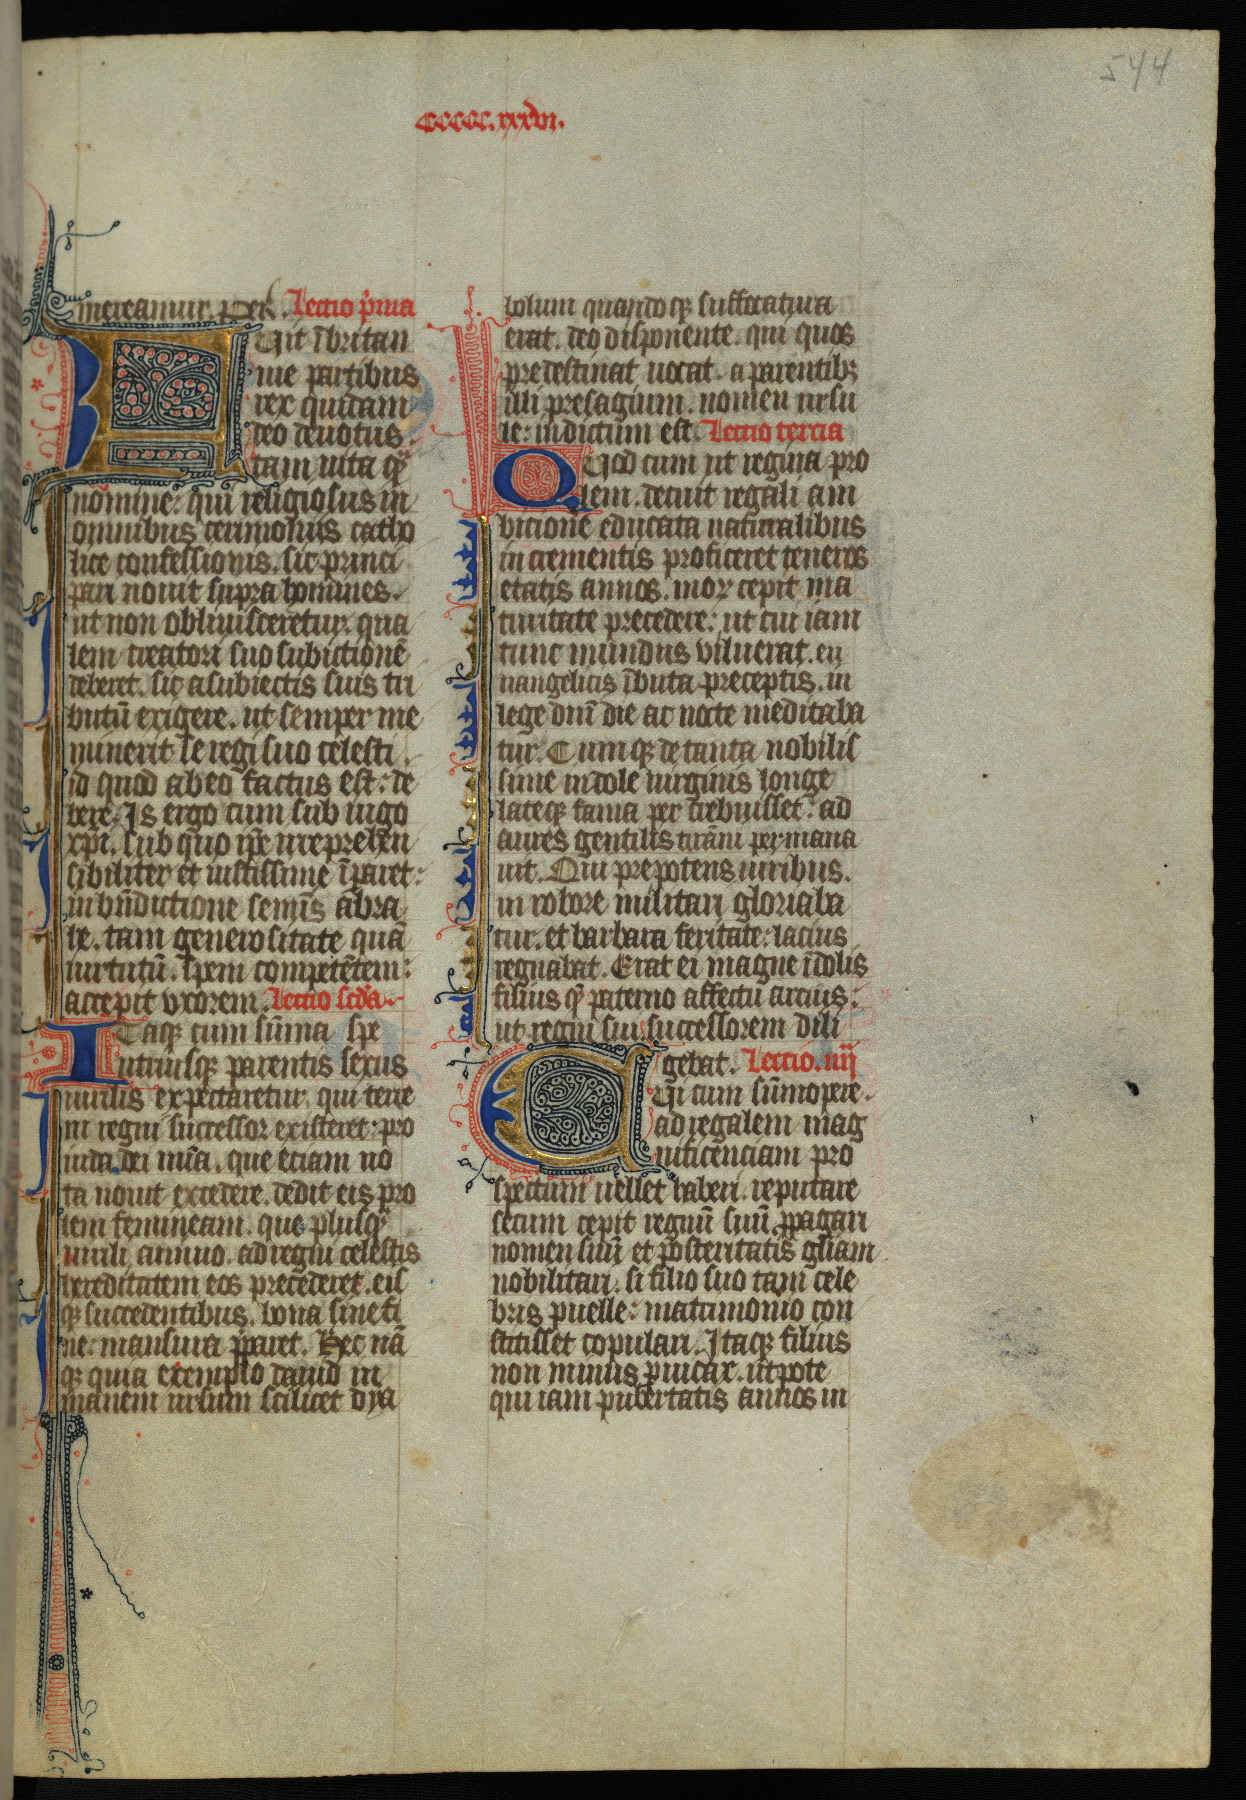 544
ccccc.xxxvi.
mereamur. Per. Lectio p̄ma
Fuit ī britan
nie partibus
rex quidam
deo deuotus.
tam uita qͣ
nomine: qui religiosus in
omnibus cerimoniis catho
lice confessionis. sic princi
pari nouit supra homines.
ut non obliuisceretur. qua
lem creatori suo subiectionē
deberet. sic a subiectis suis tri
butū exigere. ut semper me
minerit se regi suo celesti.
id quod ab eo factus est: de
bere. Is ergo cum sub iugo
xp̄i. sub quo ip̄e irreprehen
sibiliter et iustissime īparet:
in bn̄dictione semīs abra
he. tam generositate quā
uirtutū. spem competētem:
accepit vxorem. Lectio scd̄a.
Itaqꝫ cum sūma spe
utriusqꝫ parentis sexus
uirilis expectaretur. qui terre
ni regni successor existeret: pro
uida dei mīa. que etiam uo
ta nouit excedere. dedit eis pro
lem femineam. que plusqͣ
uirili animo. ad regni celestis
hereditatem eos precederet. eis
qꝫ succedentibus. bona sine fi
ne: mansura ꝓpararet. Hec nā
qꝫ quia exemplo dauid in
manem ursum scilicet dya
bolum quandoqꝫ suffocatura
erat. deo disponente. qui quos
predestinat uocat. a parentibꝫ
illi presagium. nomen ursu
le: indictum est. Lectio tercia
Quod cum ut regina pro
lem. decuit regali am
bicione educata naturalibus
incrementis proficeret teneros
etatis annos. mox cepit ma
turitate precedere: ut cui iam
tunc mundus viluerat. eu
uangelicis ībuta preceptis. in
lege dn̄i die ac nocte meditaba
tur. Cumqꝫ de tanta nobilis
sime indole uirginis longe
lateqꝫ fama per crebuisset: ad
aures gentilis tirāni permana
uit. Qui prepotens uiribus.
in robore militari gloriaba
tur. et barbara feritate: lacius
regnabat. Erat ei magne īdolis
filius qͣ paterno affectu arcius:
ut regni sui successorem dili
gebat. Lectio. iiij
Qui cum sūmopere.
ad regalem mag
nificenciam pro
spectum uellet haberi. reputare
secum cepit regnū suū ꝓpagari
nomen suū et posteritatis gl̄iam
nobilitari. si filio suo tam cele
bris puelle: matrimonio con
stitisset copulari. Itaqꝫ filius
non minus ꝓuicax. utpote
qui iam pubertatis annos in